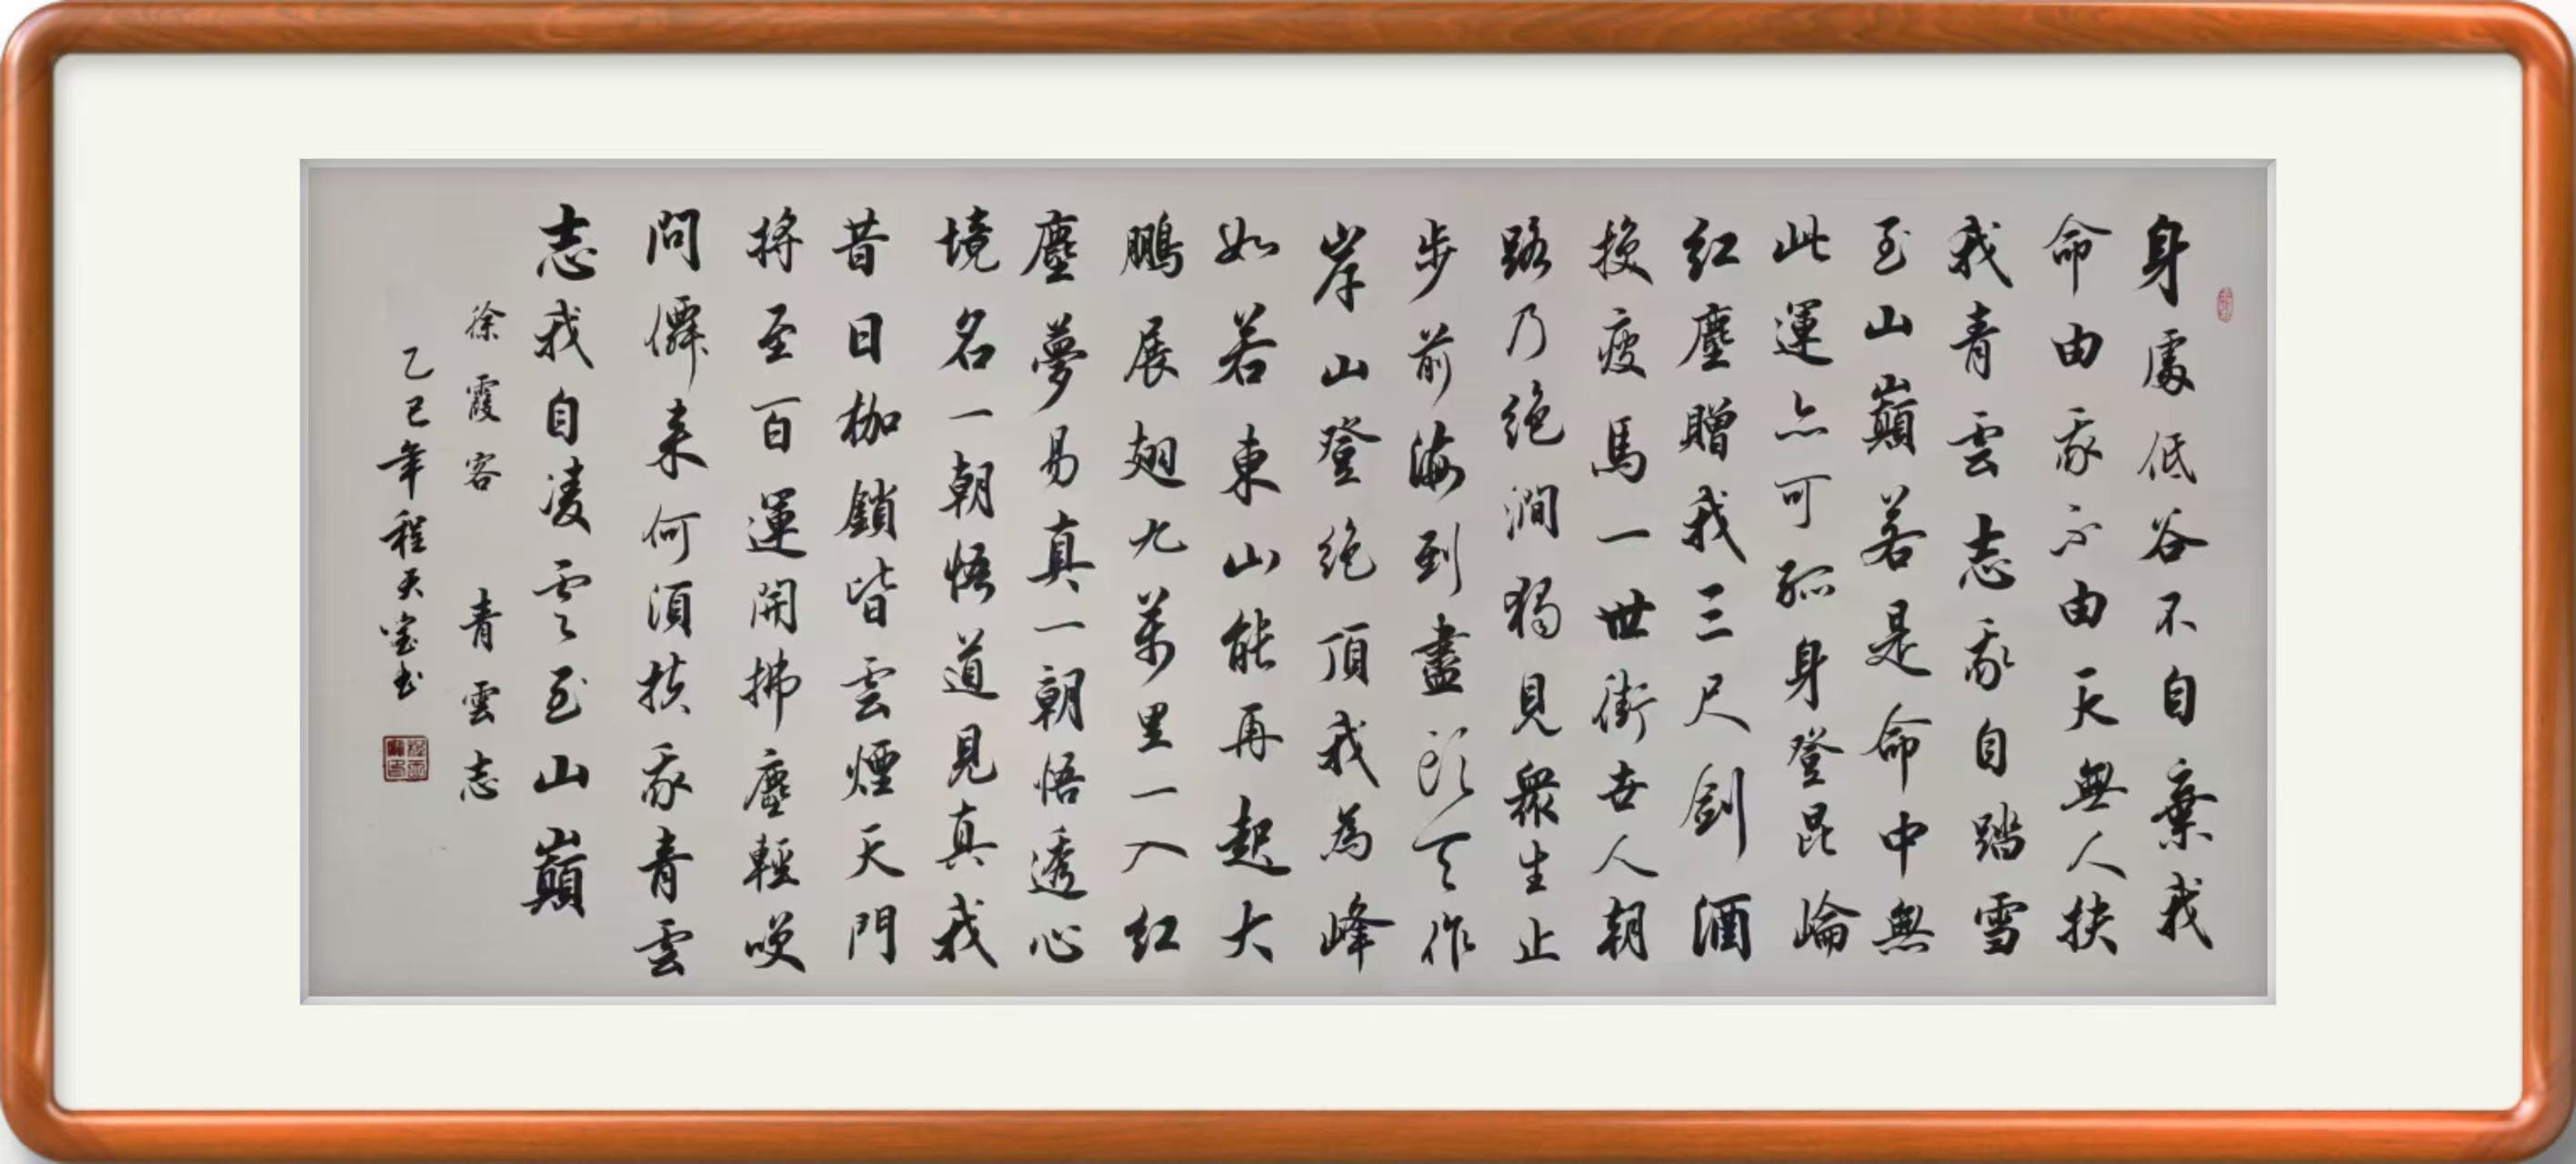 身處低谷不自棄我
命由我不由天無人扶
我青雲志我自踏雪
至山巔若是命中無
此運亦可孤身登昆崙
紅塵贈我三尺劍酒
換瘦馬一世街世人朝
路乃絕澗獨見眾生止
步前海到盡頭天作
岸山登絕頂我為峰
如若東山能再起大
鵬展翅九萬里一入紅
塵夢易真一朝悟透心
境名一朝悟道見真我
昔日枷鎖皆雲煙天門
將至百運開拂塵輕嘆
問僊來何須扶我青雲
志我自凌雲至山巔
徐霞客 青雲志
乙巳年程天寶书